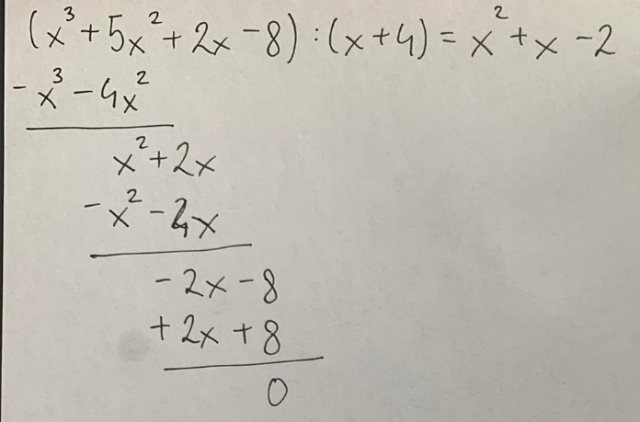 (x³+5x²+2x-8):(x+4)=x²+x-2
-x³-4x²
x²+2x
-x²-4x
-2x-8
+2x+8
0